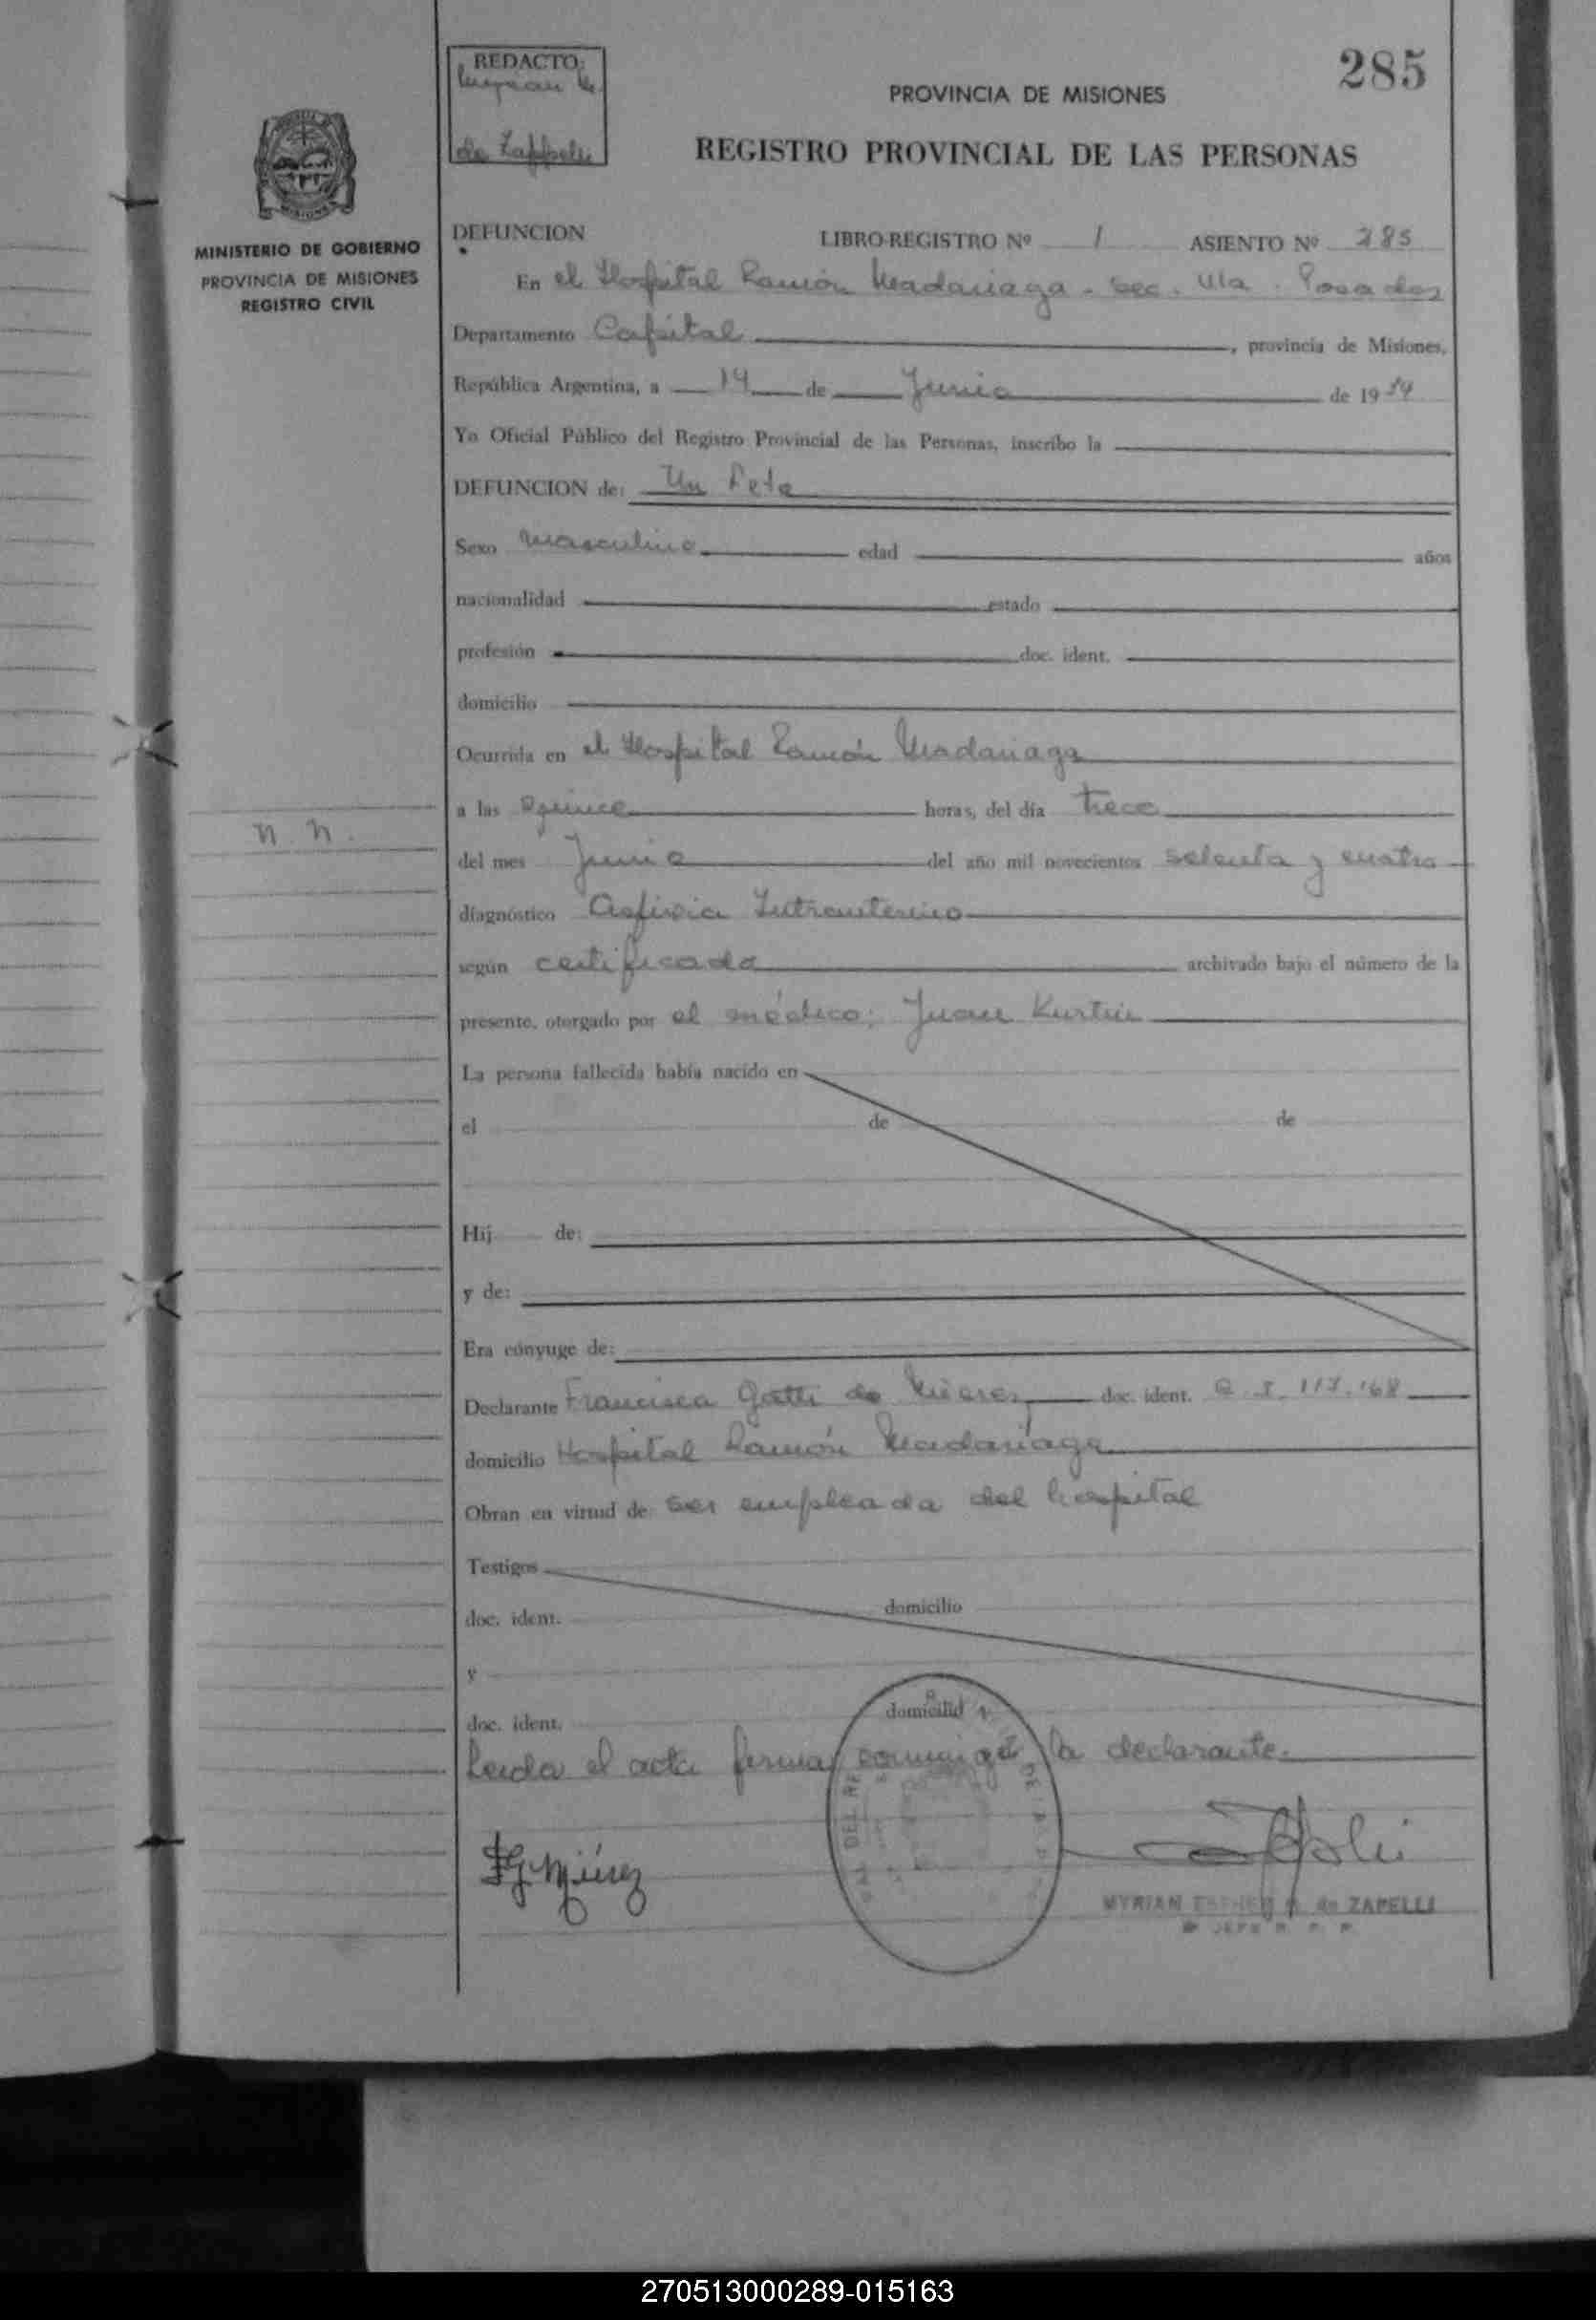 285
REDACTO:
Myrian E.
de Zappelli
PROVINCIA DE MISIONES
REGISTRO PROVINCIAL DE LAS PERSONAS
MISIONES
MINISTERIO DE GOBIERNO
PROVINCIA DE MISIONES
REGISTRO CIVIL
DEFUNCION LIBRO-REGISTRO Nº 1 ASIENTO Nº 285
En el Hospital Ramón Madariaga - sec. Posadas
Departamento Capital, provincia de Misiones,
República Argentina, a 14 de Junio de 1974
Yo Oficial Público del Registro Provincial de las Personas, inscribo la
DEFUNCION de: Un Feto
Sexo masculino edad años
nacionalidad estado
profesión doc. ident.
domicilio
Ocurrida en el Hospital Ramón Madariaga
a las quince horas, del día trece
n. n.
del mes Junio del año mil novecientos setenta y cuatro
diagnóstico Asfixia Intrauterino
según certificado archivado bajo el número de la
presente, otorgado por el médico: Juan Kurtin
La persona fallecida había nacido en
el de de
Hij de:
y de:
Era cónyuge de:
Declarante Francisca Gatti de Mierez doc. ident. 117.168
domicilio Hospital Ramón Madariaga
Obran en virtud de ser empleada del hospital
Testigos
doc. ident. domicilio
y
doc. ident. domicilio
Leida el acta firma conmigo la declarante.
F G Miérez
MYRIAN ESTHER de ZAPELLI
JEFE R. P. P.
270513000289-015163